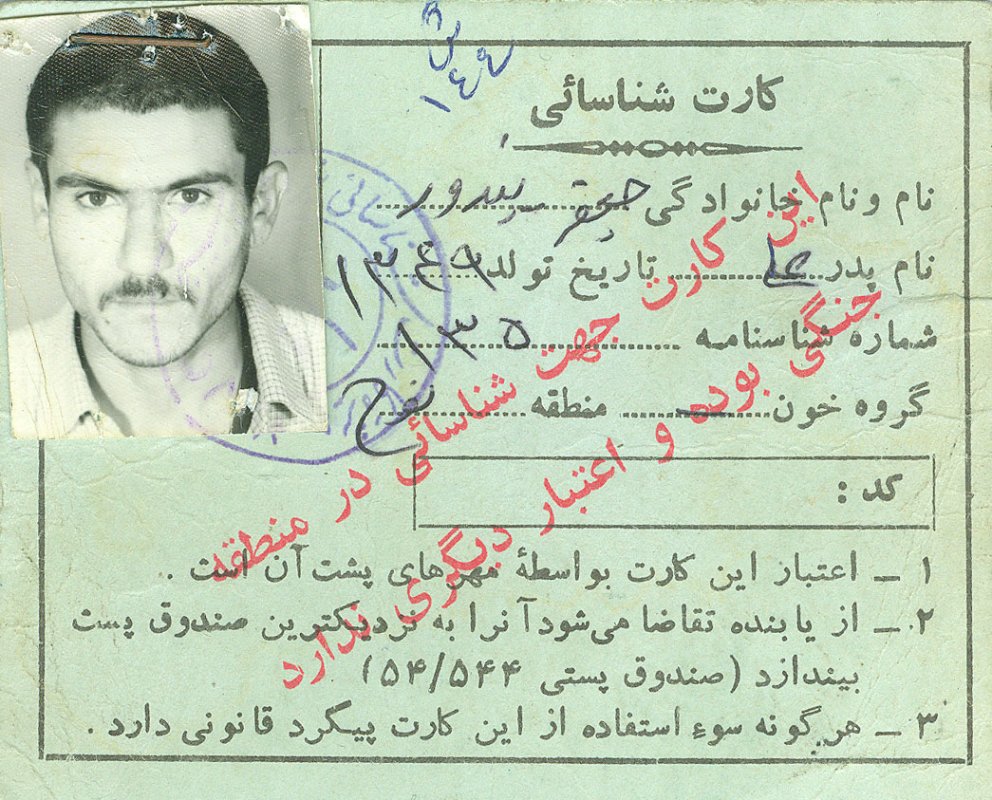 ۱۴۴
کارت شناسائی
نام و نام خانوادگی جعفر
نام پدر علی تاریخ تولد ۱۳۴۹
شماره شناسنامه ۱۳۵
گروه خون منطقه
کد :
۱ ــ اعتبار این کارت بواسطهٔ مهرهای پشت آن است .
۲ ــ از یابنده تقاضا می‌شود آنرا به نزدیکترین صندوق پست
بیندازد (صندوق پستی ۵۴/۵۴۴)
۳ ــ هر گونه سوء استفاده از این کارت پیگرد قانونی دارد .
این کارت جهت شناسائی در منطقه
جنگی بوده و اعتبار دیگری ندارد